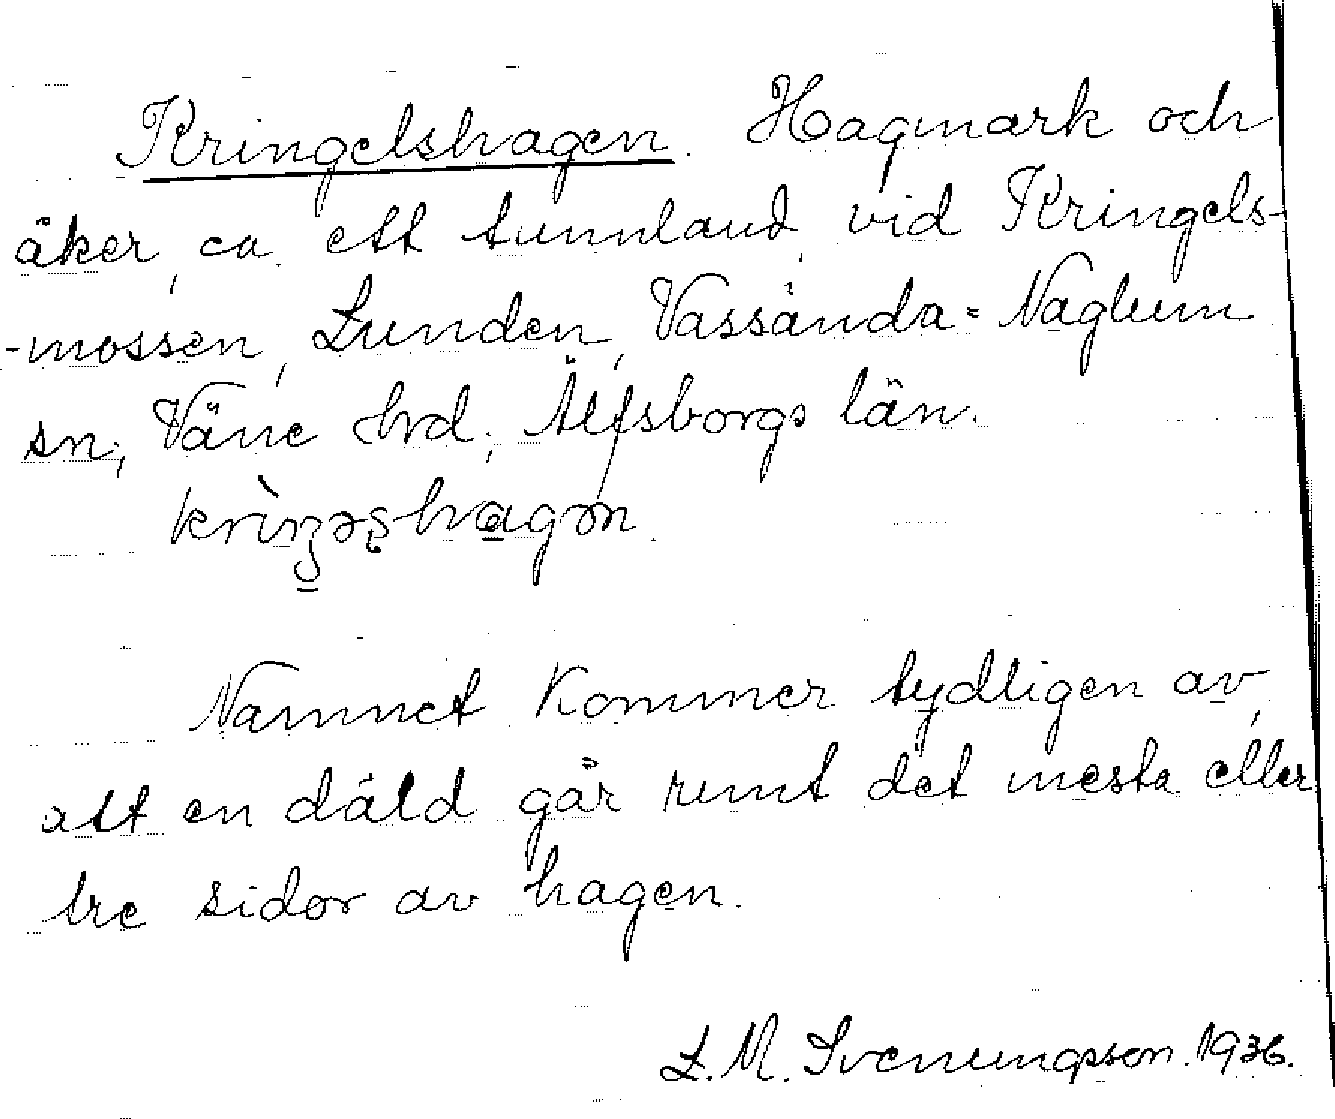 Kringelshagen. Hagmark och
åker, ca ett tunnland, vid Kringels-
-mossen, Lunden, Vassända-Naglum
sn, Väne hrd, Älfsborgs län.
Namnet kommer tydligen av,
att en däld går runt det mesta eller
tre sidor av hagen.
L. M. Svenungsson. 1936.